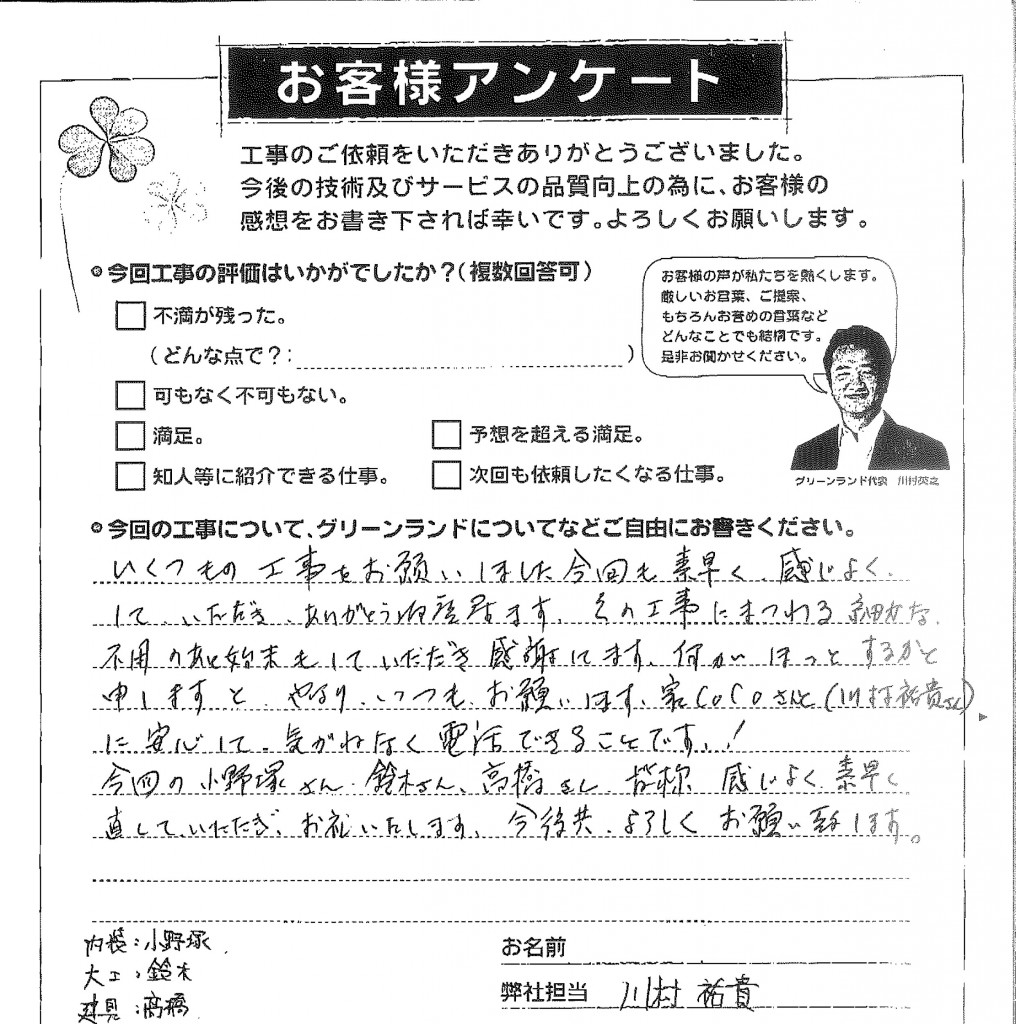 お客様アンケート
工事のご依頼をいただきありがとうございました。
今後の技術及びサービスの品質向上の為に、お客様の
感想をお書き下されば幸いです。よろしくお願いします。
今回工事の評価はいかがでしたか？（複数回答可）
不満が残った。
（どんな点で？：　）
可もなく不可もない。
満足。
予想を超える満足。
知人等に紹介できる仕事。
次回も依頼したくなる仕事。
お客様の声が私たちを熱くします。
厳しいお言葉、ご提案、
もちろんお誉めの言葉など
どんなことでも結構です。
是非お聞かせください。
グリーンランド代表　川村英之
今回の工事について、グリーンランドについてなどご自由にお書きください。
いくつもの工事をお願いしました今回も素早く、感じよく、
して、いただき、ありがとう御座居ます、その工事にまつわる細かな、
不用のあと始末もしていただき感謝してます、何がほっとするかと
申しますと、やはり、いつも、お願いします、家CoCoさんと(川村祐貴さん)
に安心して、気がねなく電話できることです、！
今回の小野塚さん、鈴木さん、高橋さん、皆称、感じよく、素早く
直して、いただき、お礼いたします、今後共、よろしくお願い致します。
内装：小野塚
大工：鈴木
建具：高橋
お名前
弊社担当　川村 祐貴